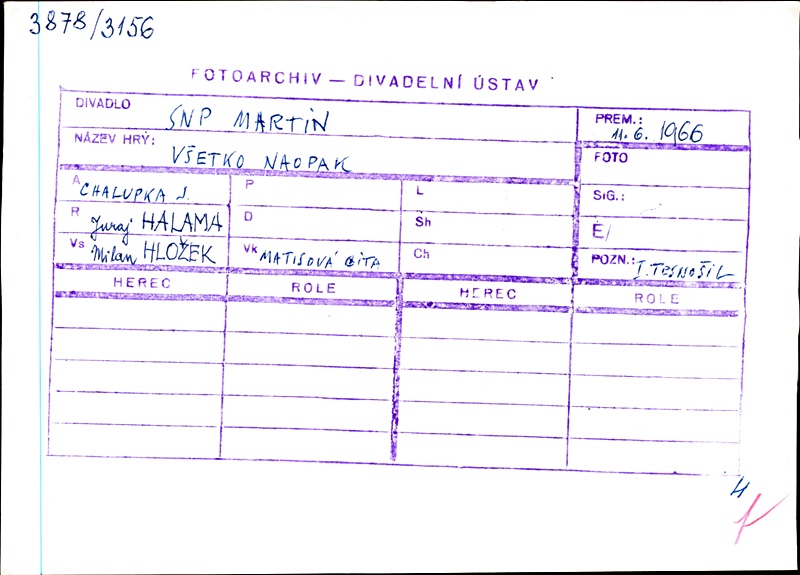 3878/3156
FOTOARCHIV — DIVADELNÍ ÚSTAV
DIVADLO SNP MARTIN
PREM.: 11. 6. 1966
NÁZEV HRY: VŠETKO NAOPAK
FOTO
A CHALUPKA J.
P
L
SIG.:
R Juraj HALAMA
D
Sh
É/
Vs Milan HLOŽEK
Vk MATISOVÁ GITA
Ch
POZN.: I. TESNOŠIL
HEREC ROLE HEREC ROLE